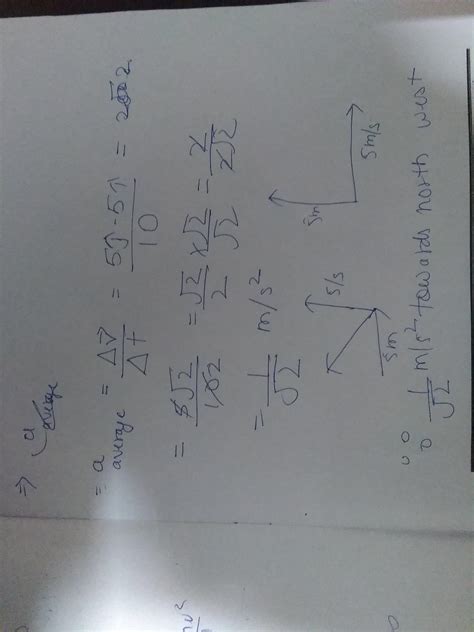 ⇒ a average
= a average = Δv⃗/Δt = 5ĵ - 5î/10 =
= 5√2/10 2 = √2/2 × √2/√2 = 2/2√2
= 1/√2 m/s²
5m
5m/s
5/s
5m
∴ 1/√2 m/s² towards north west